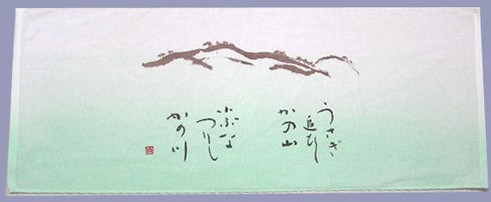 うさぎ
追ひし
かの山
小ぶな
つりし
かの川